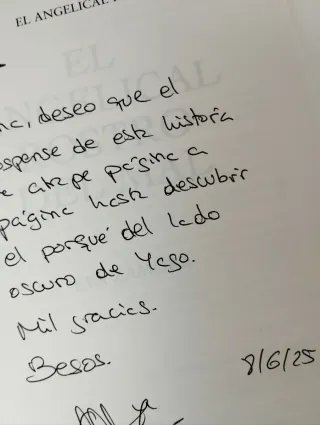 EL ANGELICAL
deseo que el
suspense de esta historia
atrape página a
página hasta descubrir
el porqué del lado
oscuro de Yago.
Mil gracias.
Besos.
8/6/25